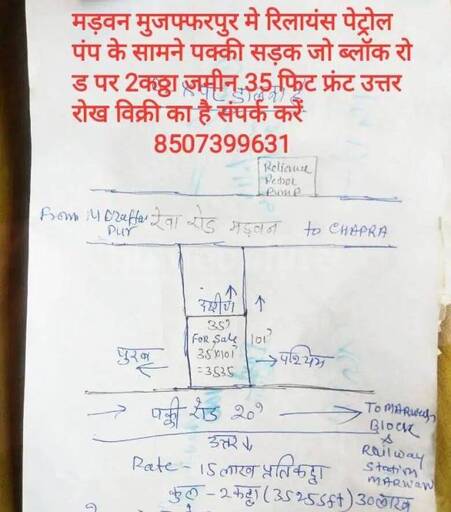 मड़वन मुजफ्फरपुर मे रिलायंस पेट्रोल
पंप के सामने पक्की सड़क जो ब्लॉक रो
ड पर 2कठ्ठा जमीन 35 फिट फ्रंट उत्तर
रोख विक्री का है संपर्क करें
8507399631
Reliance
Petrol
Pump
From Muzaffar
pur
रेवा रोड मड़वन
to CHAPRA
दक्षीण
35'
For Sale
101'
35'x101'
=3535
पुरब
पश्चिम
पक्की रोड 20'
To MARWAN
BLOCK
&
RAILWAY
Station
MARWAN
उत्तर
Rate - 15 लाख प्रतिकट्ठा
कुल - 2 कट्ठा (3525 Sft) 30 लाख